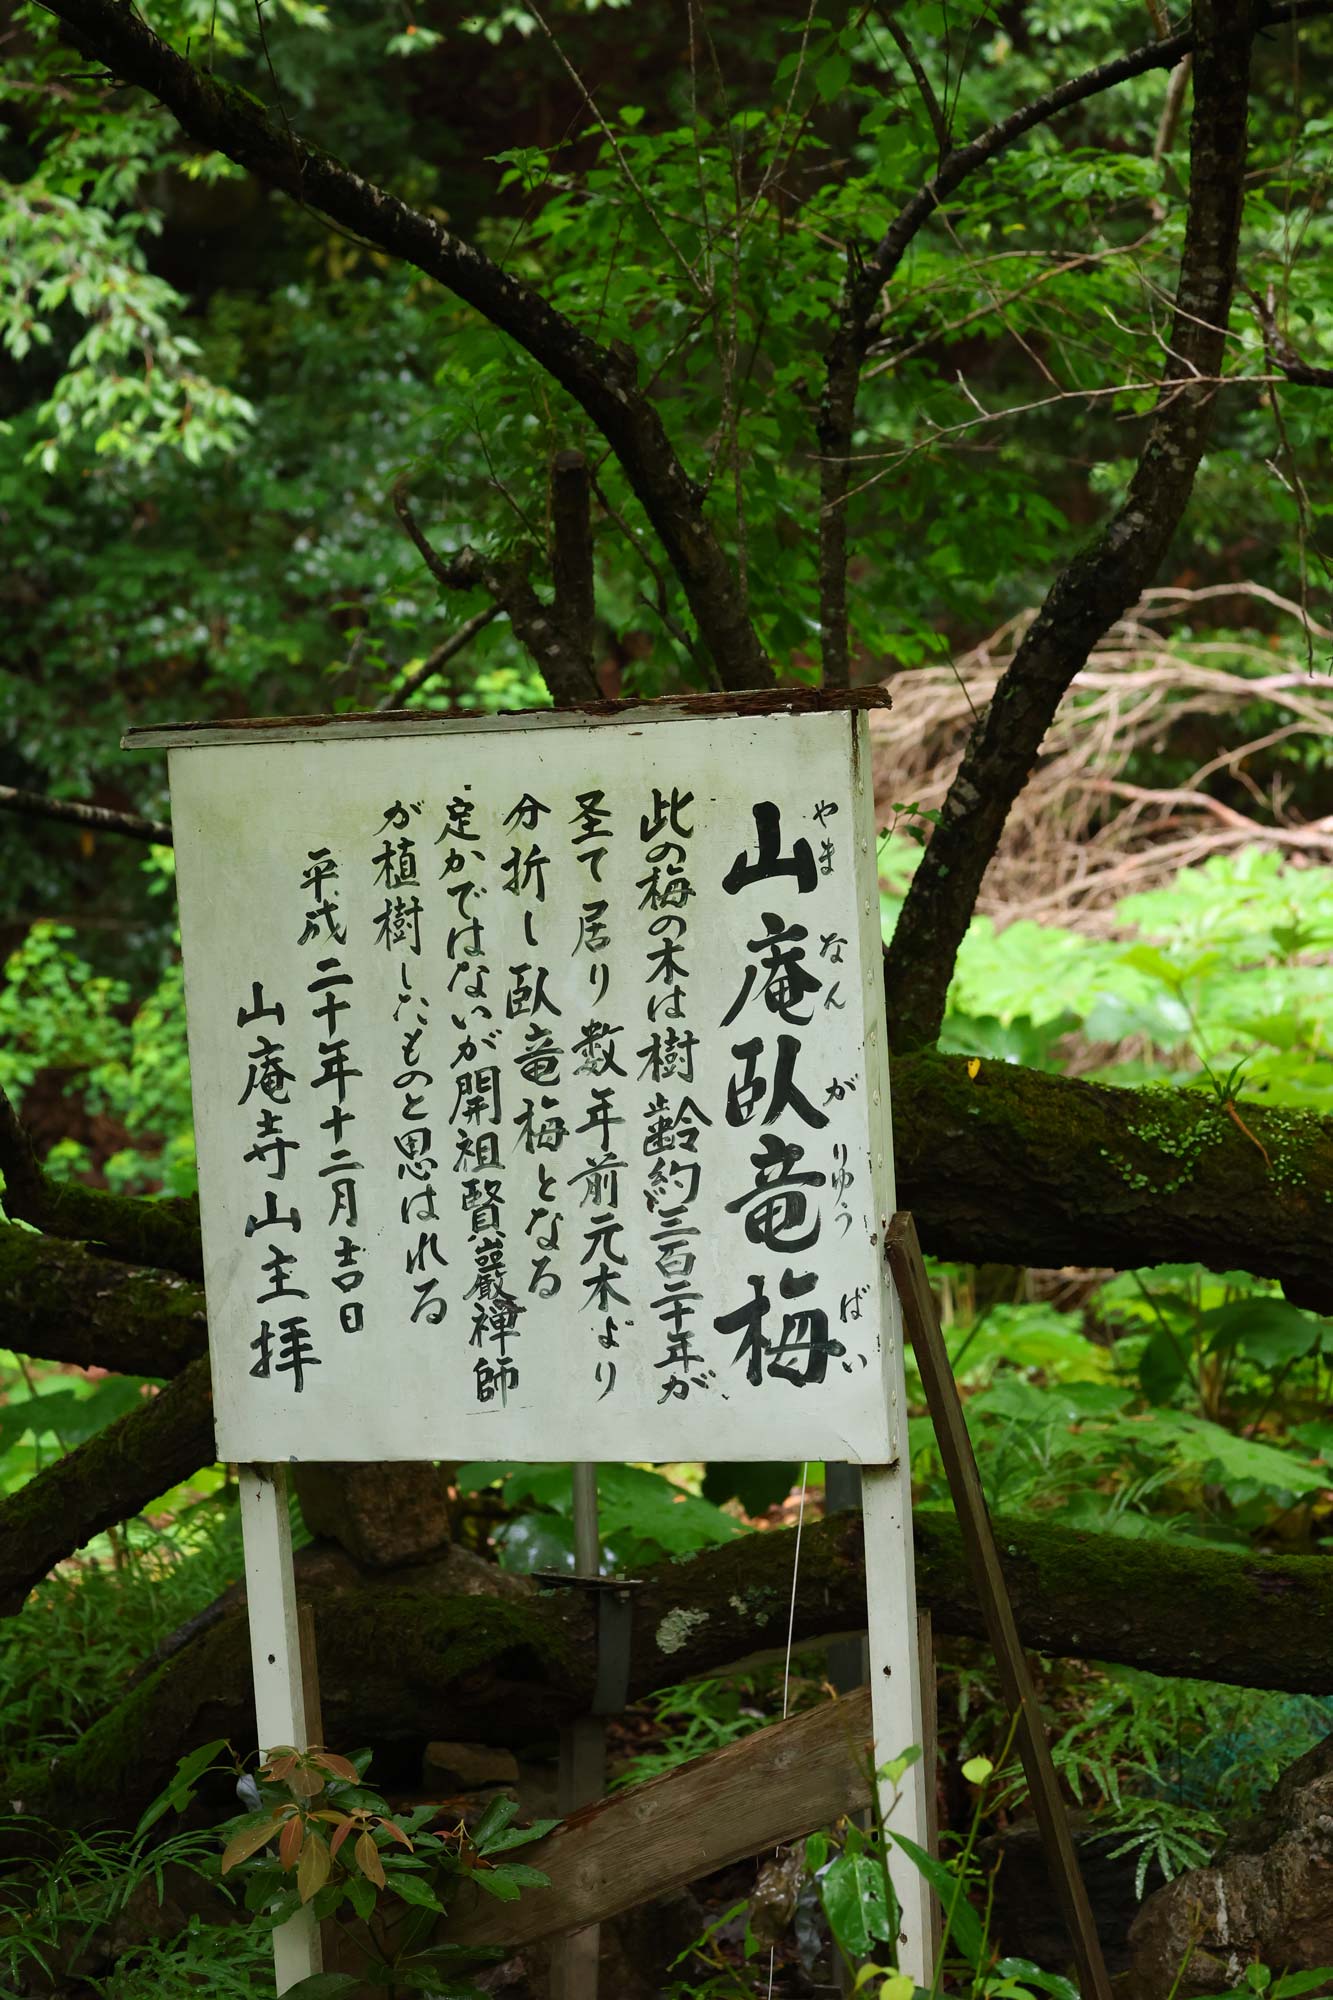 山庵臥竜梅
やまなんがりゅうばい
此の梅の木は樹齢約三百二十年が
圣て居り数年前元木より
分折し臥竜梅となる
定かではないが開祖賢巖禅師
が植樹したものと思はれる
平成二十年十二月吉日
山庵寺山主拝